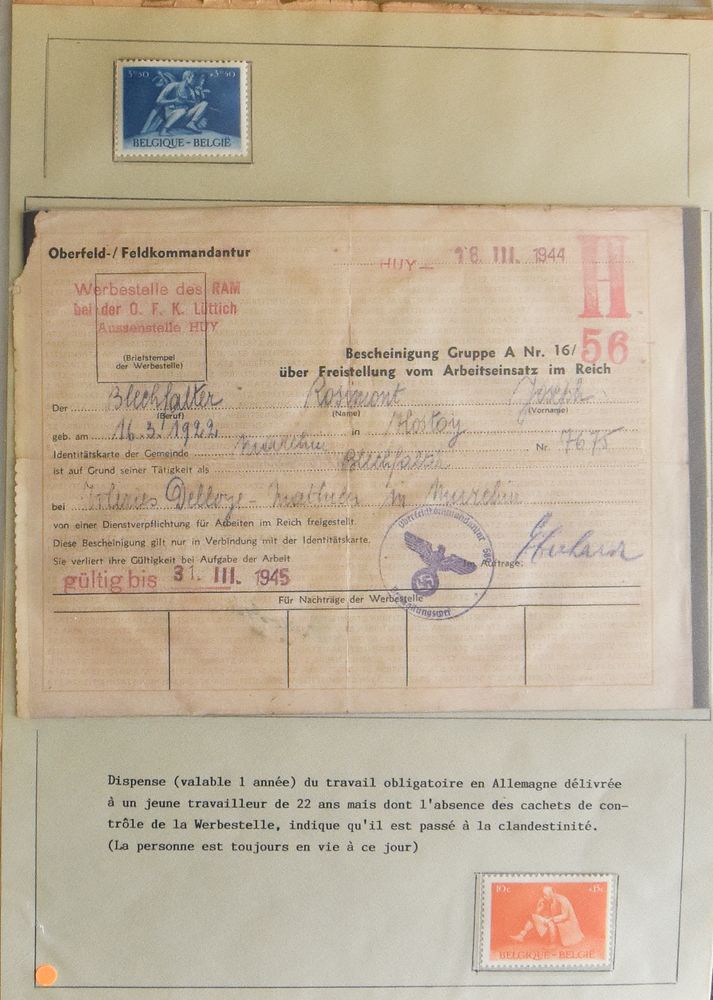 3F50 +3F50
BELGIQUE - BELGIË
Oberfeld-/ Feldkommandantur
HUY— 18. III. 1944
H
Werbestelle des RAM
bei der O. F. K. Lüttich
Aussenstelle HUY
(Briefstempel
der Werbestelle)
Bescheinigung Gruppe A Nr. 16/ 56
über Freistellung vom Arbeitseinsatz im Reich
Der Blechfalter Rosimont Joseph
(Beruf) (Name) (Vorname)
geb. am 16.3.1922 in Hostay
Identitätskarte der Gemeinde Marchin Nr. 7675
ist auf Grund seiner Tätigkeit als Blechfalter
bei Usines Delloye-Mathieu in Marchin
von einer Dienstverpflichtung für Arbeiten im Reich freigestellt.
Diese Bescheinigung gilt nur in Verbindung mit der Identitätskarte.
Sie verliert ihre Gültigkeit bei Aufgabe der Arbeit
Im Auftrage:
gültig bis 31. III. 1945
Oberfeldkommandantur
Für Nachträge der Werbestelle
Dispense (valable 1 année) du travail obligatoire en Allemagne délivrée
à un jeune travailleur de 22 ans mais dont l'absence des cachets de con-
trôle de la Werbestelle, indique qu'il est passé à la clandestinité.
(La personne est toujours en vie à ce jour)
10c +15c
BELGIQUE-BELGIË